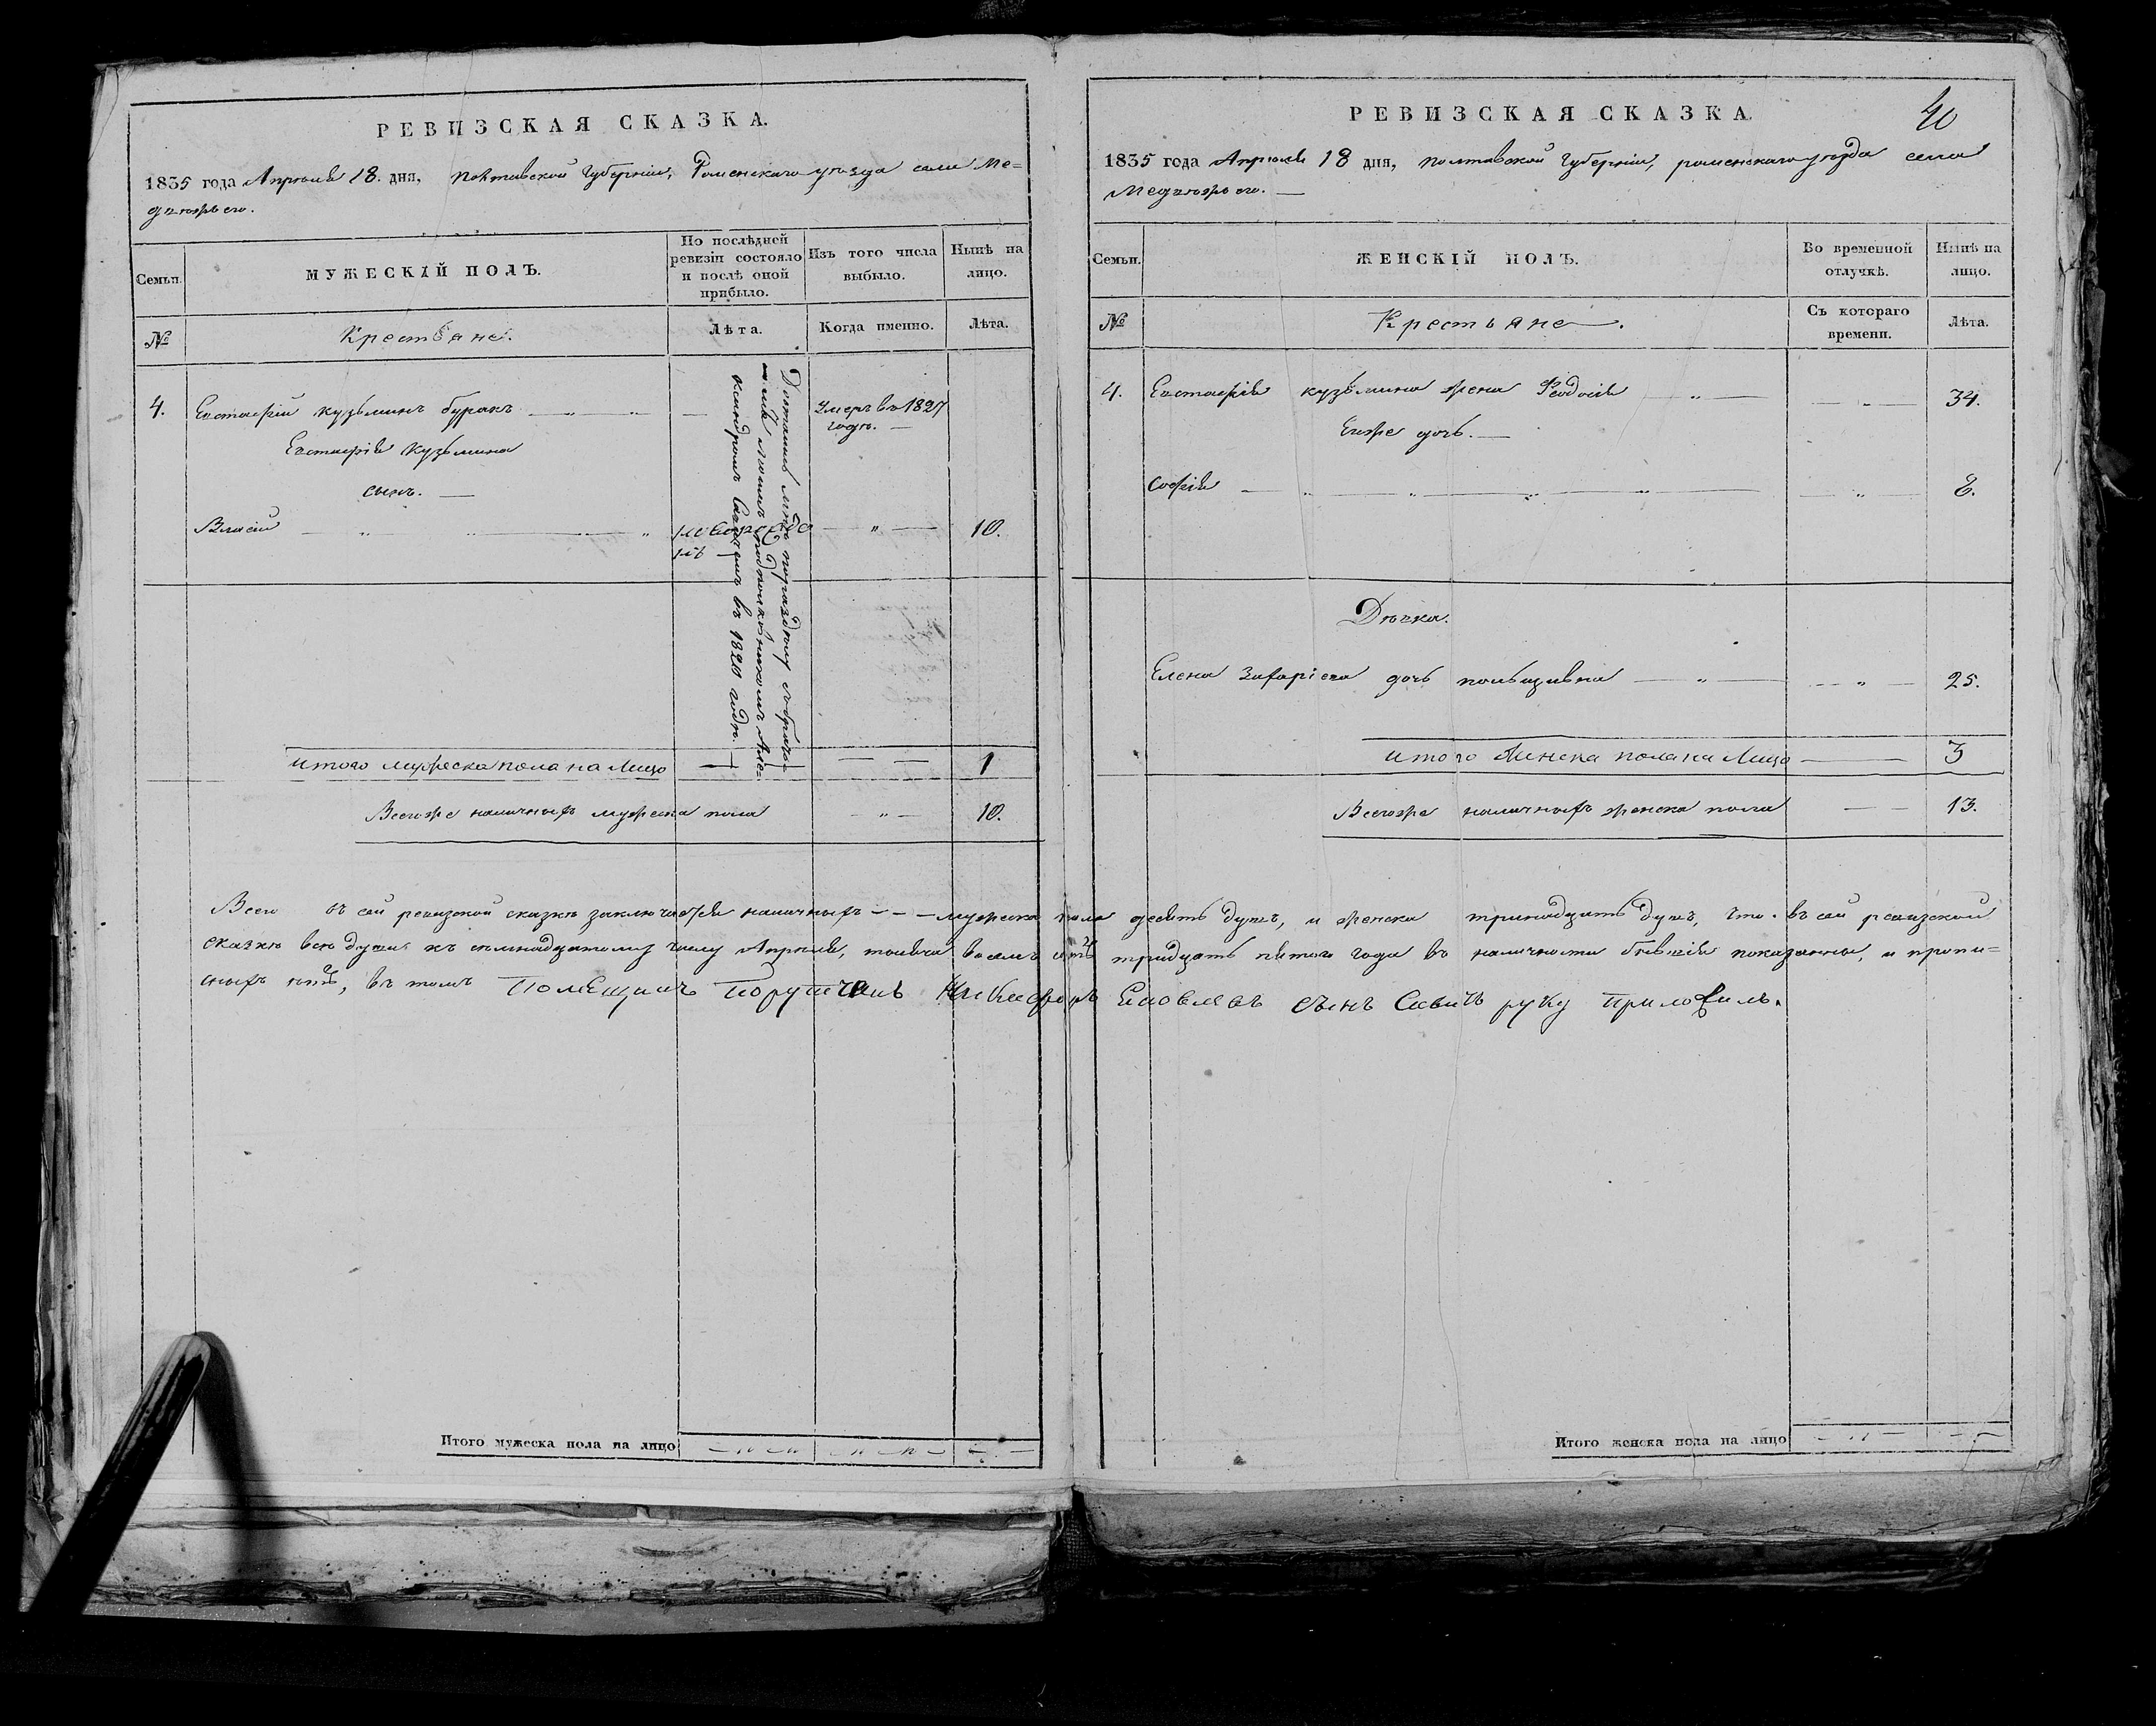 РЕВИЗСКАЯ СКАЗКА.
1835 года Апреля 18. дня, Полтавской Губернии, Роменскаго уезда села Ме=
двежьего.
Семьи.
МУЖЕСКІЙ ПОЛЪ.
По послѣдней ревизіи состояло и послѣ оной прибыло.
Изъ того числа выбыло.
Нынѣ на лицо.
№
Крестьяне.
Лѣта.
Когда именно.
Лѣта.
4.
Евстафий Кузьминъ Буракъ
Умеръ въ 1827
годе.
Евстафия Кузьмина
сынъ.
Власий
новорожде
нъ
10.
Достались мне по разделу с
въ 1820 годе.
Итого мужеска пола на Лицо
1
Всегоже наличныхъ мужеска пола
10.
РЕВИЗСКАЯ СКАЗКА
40
1835 года Апреля 18 дня, Полтавской Губернии, роменскаго уезда села
Медвежьего.
Семьи.
ЖЕНСКІЙ ПОЛЪ.
Во временной отлучкѣ.
Нынѣ на лицо.
№
Крестьяне.
Съ котораго времени.
Лѣта.
4.
Евстафия кузьмина жена Феодосия
34.
Ееже дочь.
София
8.
Девка.
Елена Захариева дочь
25.
Итого Женска пола на Лицо
3
Всегоже наличныхъ женска пола
13.
Всего въ сей ревизской сказке заключается наличныхъ - - - мужеска пола десять душъ, и женска тринадцать душъ, что въ сей ревизской
сказке все души къ семнадцатому числу Апреля, тысяча восемъ сотъ тридцать пятого года въ наличности бывшия показанны, и пропи=
сныхъ нетъ, въ томъ Помещикъ Порутчикъ Никифоръ Яковлевъ сынъ Савичь руку приложилъ.
Итого мужеска пола на лицо
Итого женска пола на лицо